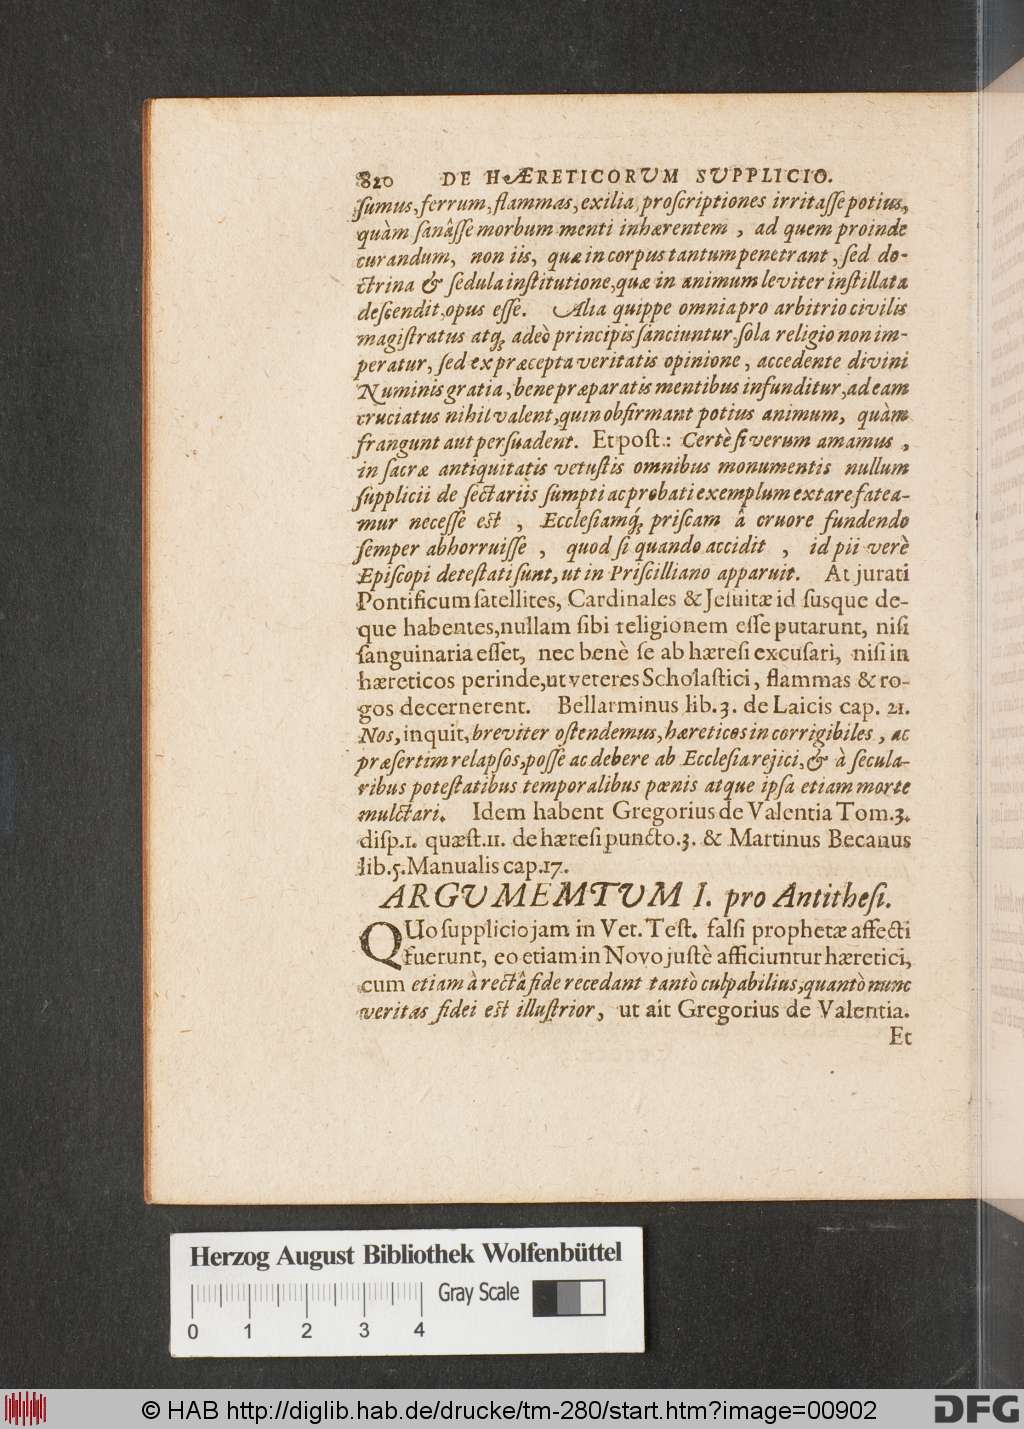 820 DE HÆRETICORUM SUPPLICIO.
ſumus, ferrum, flammas, exilia, proſcriptiones irritaſſe potius,
quàm ſanâſſe morbum menti inhærentem, ad quem proinde
curandum, non iis, quæ in corpus tantum penetrant, ſed do-
ctrina & ſedula inſtitutione, quæ in animum leviter inſtillata
deſcendit, opus eſſe. Alia quippe omnia pro arbitrio civilis
magiſtratus atq; adeò principis ſanciuntur. ſola religio non im-
peratur, ſed ex præcepta veritatis opinione, accedente divini
Numinis gratia, bene præparatis mentibus infunditur, ad eam
cruciatus nihil valent, quin obfirmant potius animum, quàm
frangunt aut perſuadent. Et poſt.: Certè ſi verum amamus,
in ſacræ antiquitatis vetuſtis omnibus monumentis nullum
ſupplicii de ſectariis ſumpti ac probati exemplum extare fatea-
mur neceſſe est, Eccleſiamq́; priſcam â cruore fundendo
ſemper abhorruiſſe, quod ſi quando accidit, id pii verè
Epiſcopi deteſtati ſunt, ut in Priſcilliano apparuit. At jurati
Pontificum ſatellites, Cardinales & Jeſuitæ id ſusque de-
que habentes, nullam ſibi religionem eſſe putarunt, niſi
ſanguinaria eſſet, nec benè ſe ab hæreſi excuſari, niſi in
hæreticos perinde, ut veteres Scholaſtici, flammas & ro-
gos decernerent. Bellarminus lib. 3. de Laicis cap. 21.
Nos, inquit, breviter oſtendemus, hæreticos incorrigibiles, ac
præſertim relapſos, poſſe ac debere ab Eccleſia rejici, & à ſecula-
ribus poteſtatibus temporalibus pœnis atque ipſa etiam morte
mulctari. Idem habent Gregorius de Valentia Tom. 3.
diſp. 1. quæſt. 11. de hæreſi puncto. 3. & Martinus Becanus
lib. 5. Manualis cap. 17.
ARGUMEMTUM I. pro Antitheſi.
QUo ſupplicio jam in Vet. Teſt. falſi prophetæ affecti
fuerunt, eo etiam in Novo juſtè afficiuntur hæretici,
cum etiam à rectâ fide recedant tantò culpabilius, quantò nunc
veritas fidei est illuſtrior, ut ait Gregorius de Valentia.
Et
Herzog August Bibliothek Wolfenbüttel
Gray Scale
0 1 2 3 4
© HAB http://diglib.hab.de/drucke/tm-280/start.htm?image=00902
DFG